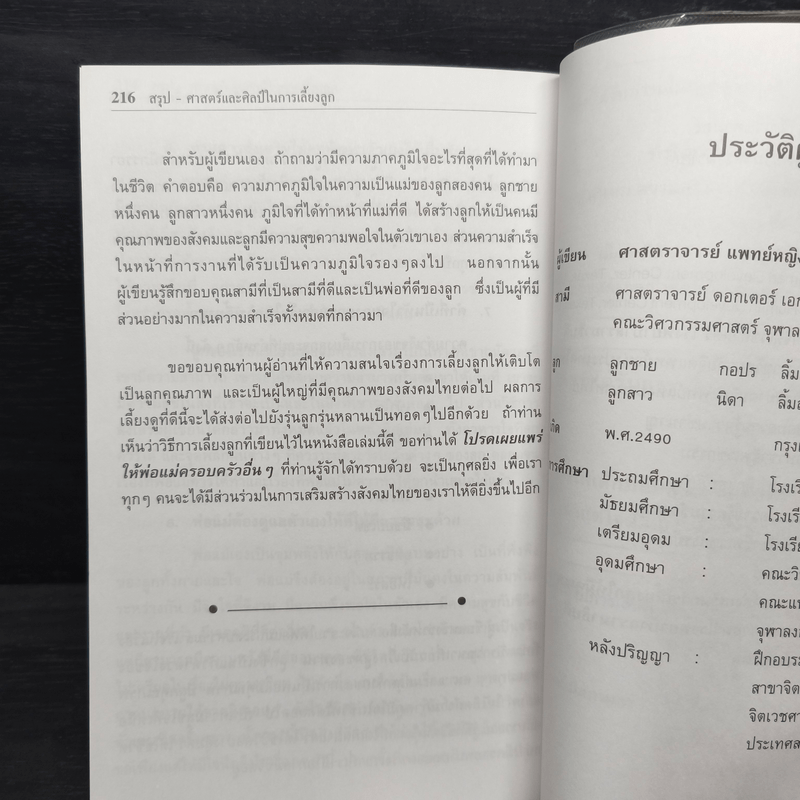 216 สรุป - ศาสตร์และศิลป์ในการเลี้ยงลูก
สำหรับผู้เขียนเอง ถ้าถามว่ามีความภาคภูมิใจอะไรที่สุดที่ได้ทำมา
ในชีวิต คำตอบคือ ความภาคภูมิใจในความเป็นแม่ของลูกสองคน ลูกชาย
หนึ่งคน ลูกสาวหนึ่งคน ภูมิใจที่ได้ทำหน้าที่แม่ที่ดี ได้สร้างลูกให้เป็นคนมี
คุณภาพของสังคมและลูกมีความสุขความพอใจในตัวเขาเอง ส่วนความสำเร็จ
ในหน้าที่การงานที่ได้รับเป็นความภูมิใจรองๆลงไป นอกจากนั้น
ผู้เขียนรู้สึกขอบคุณสามีที่เป็นสามีที่ดีและเป็นพ่อที่ดีของลูก ซึ่งเป็นผู้ที่มี
ส่วนอย่างมากในความสำเร็จทั้งหมดที่กล่าวมา
ขอขอบคุณท่านผู้อ่านที่ให้ความสนใจเรื่องการเลี้ยงลูกให้เติบโต
เป็นลูกคุณภาพ และเป็นผู้ใหญ่ที่มีคุณภาพของสังคมไทยต่อไป ผลการ
เลี้ยงดูที่ดีนี้จะได้ส่งต่อไปยังรุ่นลูกรุ่นหลานเป็นทอดๆไปอีกด้วย ถ้าท่าน
เห็นว่าวิธีการเลี้ยงลูกที่เขียนไว้ในหนังสือเล่มนี้ดี ขอท่านได้ โปรดเผยแพร่
ให้พ่อแม่ครอบครัวอื่นๆ ที่ท่านรู้จักได้ทราบด้วย จะเป็นกุศลยิ่ง เพื่อเรา
ทุกๆ คนจะได้มีส่วนร่วมในการเสริมสร้างสังคมไทยของเราให้ดียิ่งขึ้นไปอีก
ประวัติ
ผู้เขียน ศาสตราจารย์ แพทย์หญิง
สามี ศาสตราจารย์ ดอกเตอร์ เอก
คณะวิศวกรรมศาสตร์ จุฬาล
ลูก ลูกชาย กอปร ลิ้ม
ลูกสาว นิดา ลิ้ม
พ.ศ.2490 กรุง
การศึกษา ประถมศึกษา : โรงเรี
มัธยมศึกษา : โรงเรี
เตรียมอุดม : โรงเรี
อุดมศึกษา : คณะวิ
คณะแพ
จุฬาลง
หลังปริญญา : ฝึกอบร
สาขาจิต
จิตเวชศา
ประเทศส